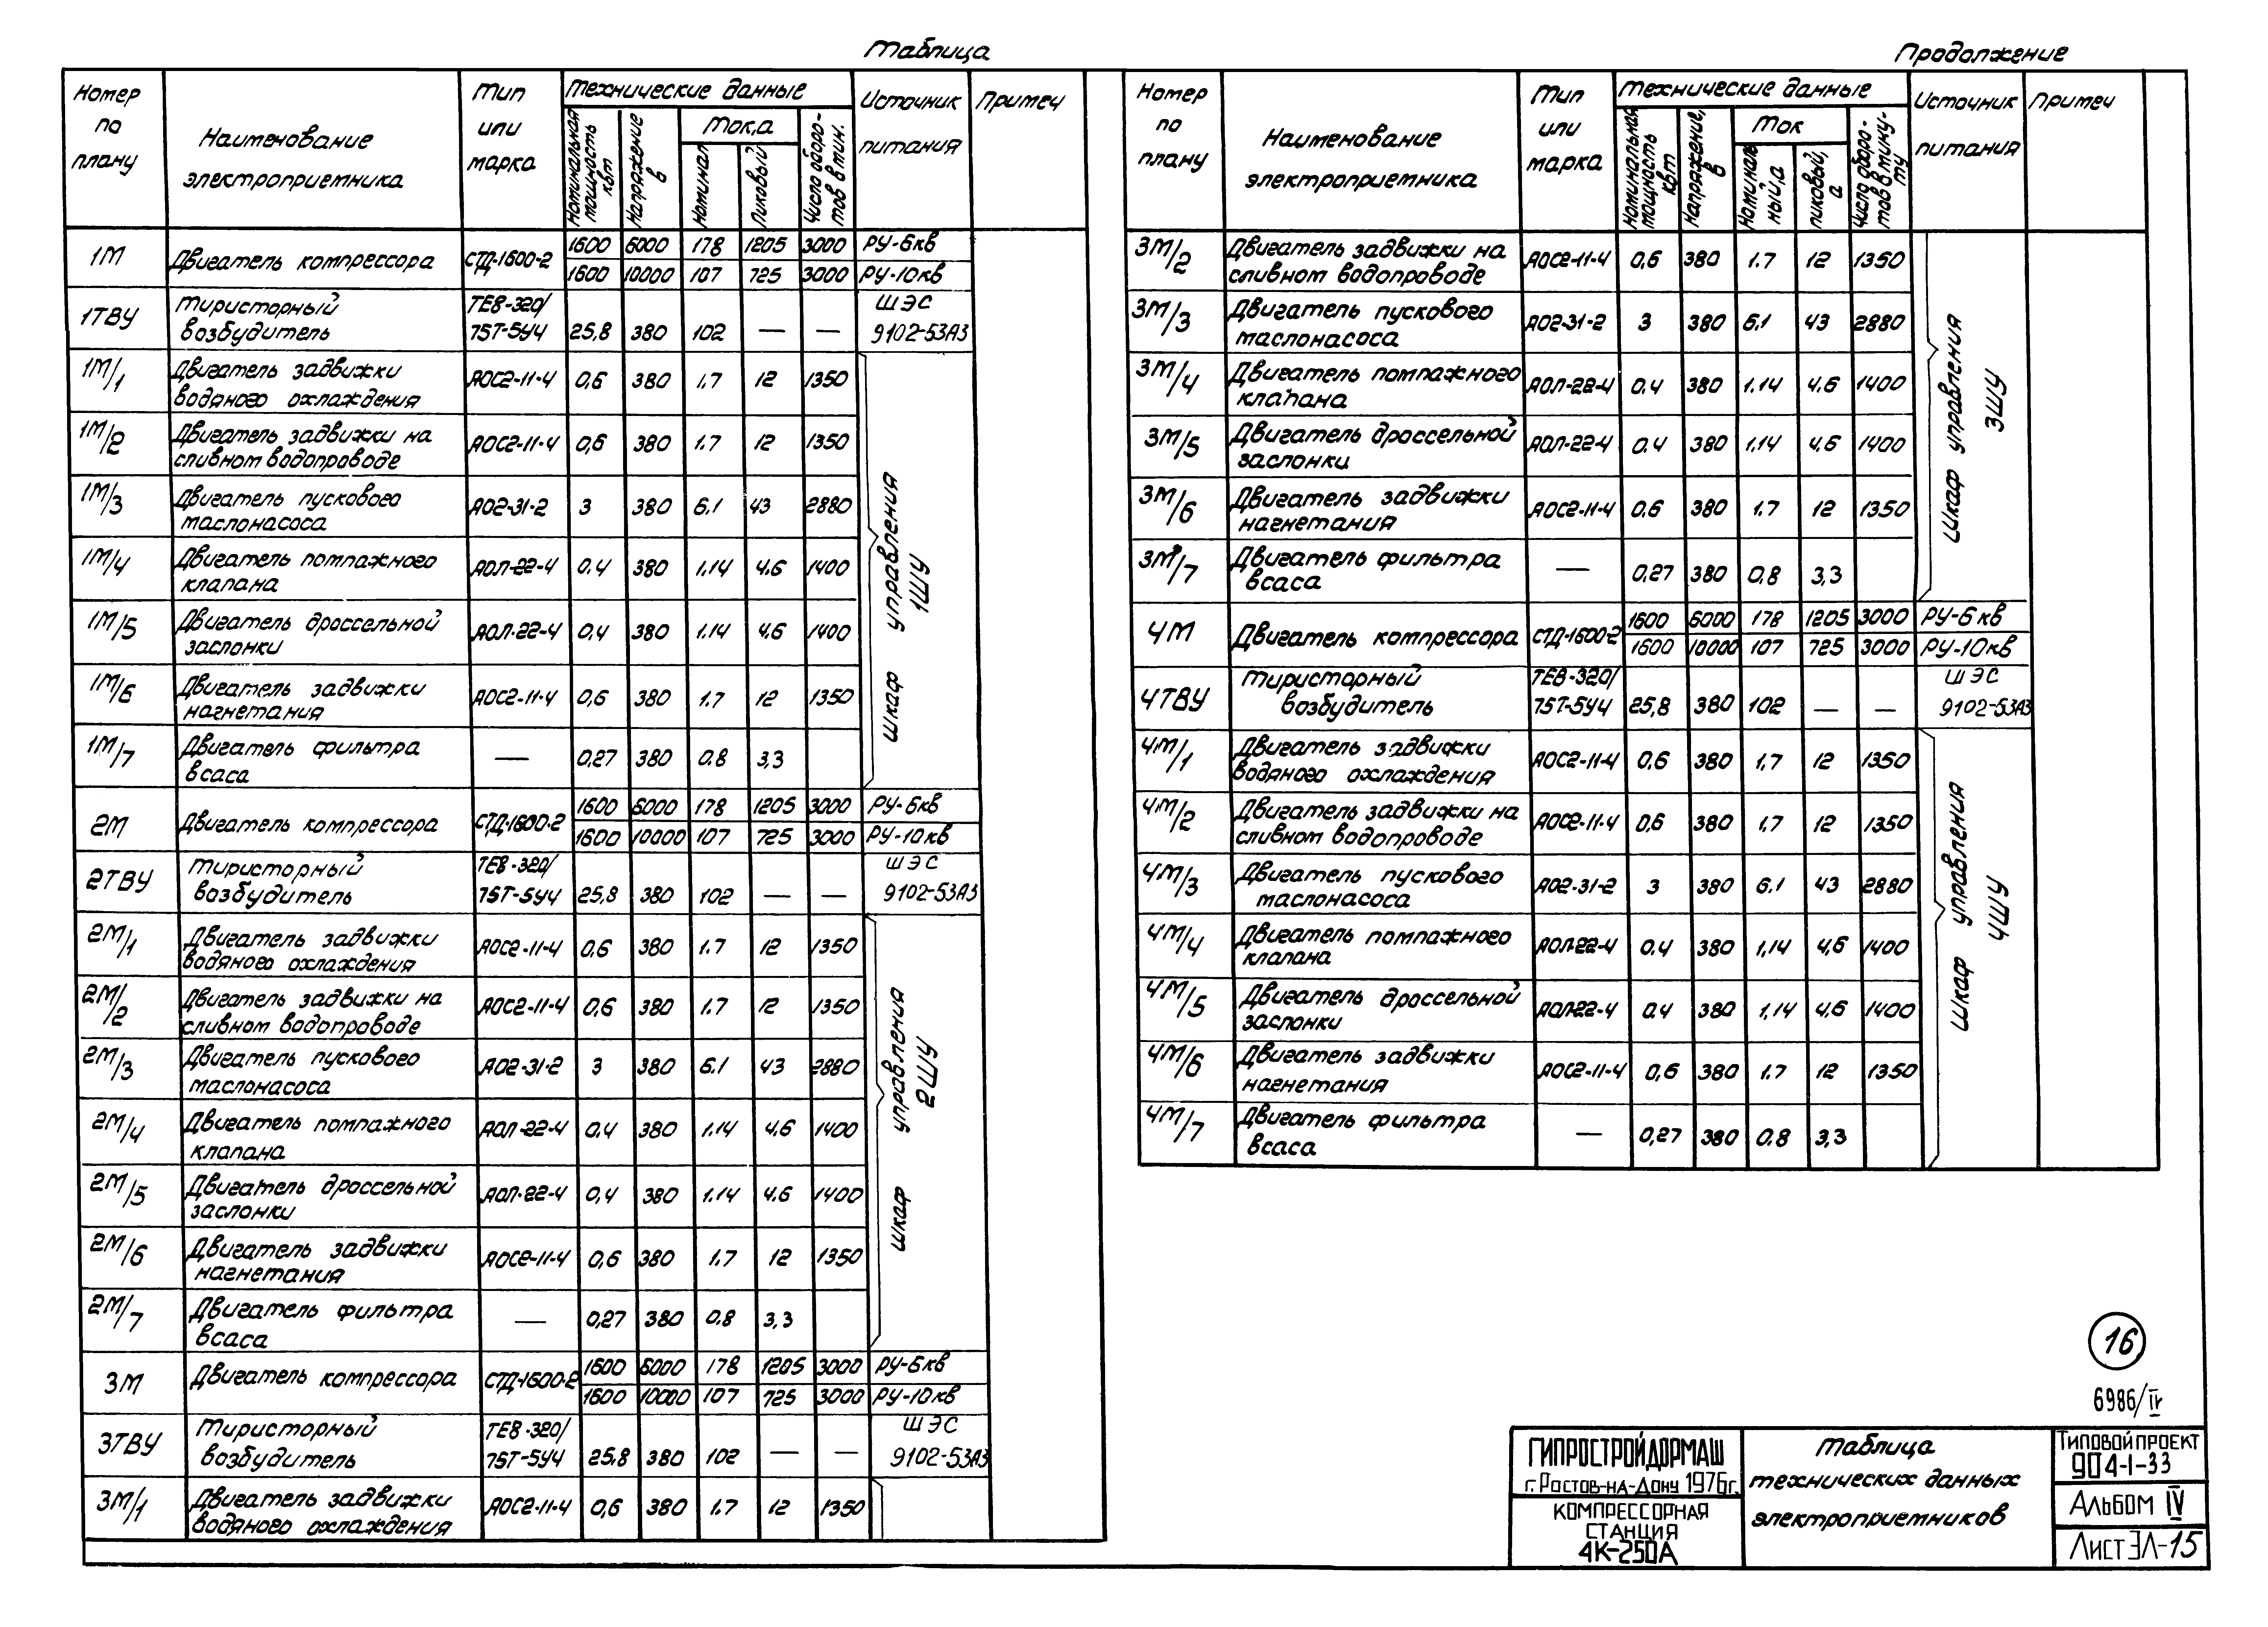 Таблица
Номер по плану | Наименование электроприемника | Тип или марка | Технические данные | Источник питания | Примеч
Номинальная мощность квт | Напряжение в | Ток, а | Число оборотов в мин.
Номинал | Пиковый
1М | Двигатель компрессора | СТД-1600-2 | 1600 | 6000 | 178 | 1205 | 3000 | РУ-6кв
1600 | 10000 | 107 | 725 | 3000 | РУ-10кв
1ТВУ | Тиристорный возбудитель | ТЕ8-320/75Т-5У4 | 25,8 | 380 | 102 | — | — | ШЭС 9102-53А3
1М/1 | Двигатель задвижки водяного охлаждения | АОС2-11-4 | 0,6 | 380 | 1.7 | 12 | 1350
1М/2 | Двигатель задвижки на сливном водопроводе | АОС2-11-4 | 0,6 | 380 | 1.7 | 12 | 1350
1М/3 | Двигатель пускового маслонасоса | АО2-31-2 | 3 | 380 | 6.1 | 43 | 2880
1М/4 | Двигатель помпажного клапана | АОЛ-22-4 | 0,4 | 380 | 1.14 | 4.6 | 1400
1М/5 | Двигатель дроссельной заслонки | АОЛ-22-4 | 0,4 | 380 | 1.14 | 4.6 | 1400
1М/6 | Двигатель задвижки нагнетания | АОС2-11-4 | 0,6 | 380 | 1.7 | 12 | 1350
1М/7 | Двигатель фильтра всаса | — | 0,27 | 380 | 0.8 | 3,3
Шкаф управления 1ШУ
2М | Двигатель компрессора | СТД-1600-2 | 1600 | 6000 | 178 | 1205 | 3000 | РУ-6кв
1600 | 10000 | 107 | 725 | 3000 | РУ-10кв
2ТВУ | Тиристорный возбудитель | ТЕ8-320/75Т-5У4 | 25,8 | 380 | 102 | — | — | ШЭС 9102-53А3
2М/1 | Двигатель задвижки водяного охлаждения | АОС2-11-4 | 0,6 | 380 | 1.7 | 12 | 1350
2М/2 | Двигатель задвижки на сливном водопроводе | АОС2-11-4 | 0,6 | 380 | 1.7 | 12 | 1350
2М/3 | Двигатель пускового маслонасоса | АО2-31-2 | 3 | 380 | 6.1 | 43 | 2880
2М/4 | Двигатель помпажного клапана | АОЛ-22-4 | 0,4 | 380 | 1.14 | 4.6 | 1400
2М/5 | Двигатель дроссельной заслонки | АОЛ-22-4 | 0,4 | 380 | 1.14 | 4.6 | 1400
2М/6 | Двигатель задвижки нагнетания | АОС2-11-4 | 0,6 | 380 | 1.7 | 12 | 1350
2М/7 | Двигатель фильтра всаса | — | 0,27 | 380 | 0.8 | 3,3
шкаф управления 2ШУ
3М | Двигатель компрессора | СТД-1600-2 | 1600 | 6000 | 178 | 1205 | 3000 | РУ-6кв
1600 | 10000 | 107 | 725 | 3000 | РУ-10кв
3ТВУ | Тиристорный возбудитель | ТЕ8-320/75Т-5У4 | 25,8 | 380 | 102 | — | — | ШЭС 9102-53А3
3М/1 | Двигатель задвижки водяного охлаждения | АОС2-11-4 | 0,6 | 380 | 1.7 | 12 | 1350
Продолжение
Номер по плану | Наименование электроприемника | Тип или марка | Технические данные | Источник питания | Примеч
Номинальная мощность квт | Напряжение, в | Ток | Число оборотов в минуту
Номинальный, а | пиковый, а
3М/2 | Двигатель задвижки на сливном водопроводе | АОС2-11-4 | 0,6 | 380 | 1.7 | 12 | 1350
3М/3 | Двигатель пускового маслонасоса | АО2-31-2 | 3 | 380 | 6.1 | 43 | 2880
3М/4 | Двигатель помпажного клапана | АОЛ-22-4 | 0.4 | 380 | 1.14 | 4.6 | 1400
3М/5 | Двигатель дроссельной заслонки | АОЛ-22-4 | 0.4 | 380 | 1.14 | 4.6 | 1400
3М/6 | Двигатель задвижки нагнетания | АОС2-11-4 | 0.6 | 380 | 1.7 | 12 | 1350
3М/7 | Двигатель фильтра всаса | — | 0,27 | 380 | 0.8 | 3,3
Шкаф управления 3ШУ
4М | Двигатель компрессора | СТД-1600-2 | 1600 | 6000 | 178 | 1205 | 3000 | РУ-6кв
1600 | 10000 | 107 | 725 | 3000 | РУ-10кв
4ТВУ | Тиристорный возбудитель | ТЕ8-320/75Т-5У4 | 25,8 | 380 | 102 | — | — | ШЭС 9102-53А3
4М/1 | Двигатель задвижки водяного охлаждения | АОС2-11-4 | 0,6 | 380 | 1.7 | 12 | 1350
4М/2 | Двигатель задвижки на сливном водопроводе | АОС2-11-4 | 0,6 | 380 | 1.7 | 12 | 1350
4М/3 | Двигатель пускового маслонасоса | АО2-31-2 | 3 | 380 | 6.1 | 43 | 2880
4М/4 | Двигатель помпажного клапана | АОЛ-22-4 | 0.4 | 380 | 1,14 | 4,6 | 1400
4М/5 | Двигатель дроссельной заслонки | АОЛ-22-4 | 0.4 | 380 | 1,14 | 4,6 | 1400
4М/6 | Двигатель задвижки нагнетания | АОС2-11-4 | 0,6 | 380 | 1.7 | 12 | 1350
4М/7 | Двигатель фильтра всаса | — | 0,27 | 380 | 0.8 | 3,3
Шкаф управления 4ШУ
16
6986/IV
ГИПРОСТРОЙДОРМАШ
г. Ростов-на-Дону 1976г.
КОМПРЕССОРНАЯ
СТАНЦИЯ
4К-250А
Таблица
технических данных
электроприемников
Типовой проект
904-1-33
Альбом IV
Лист ЭЛ-15